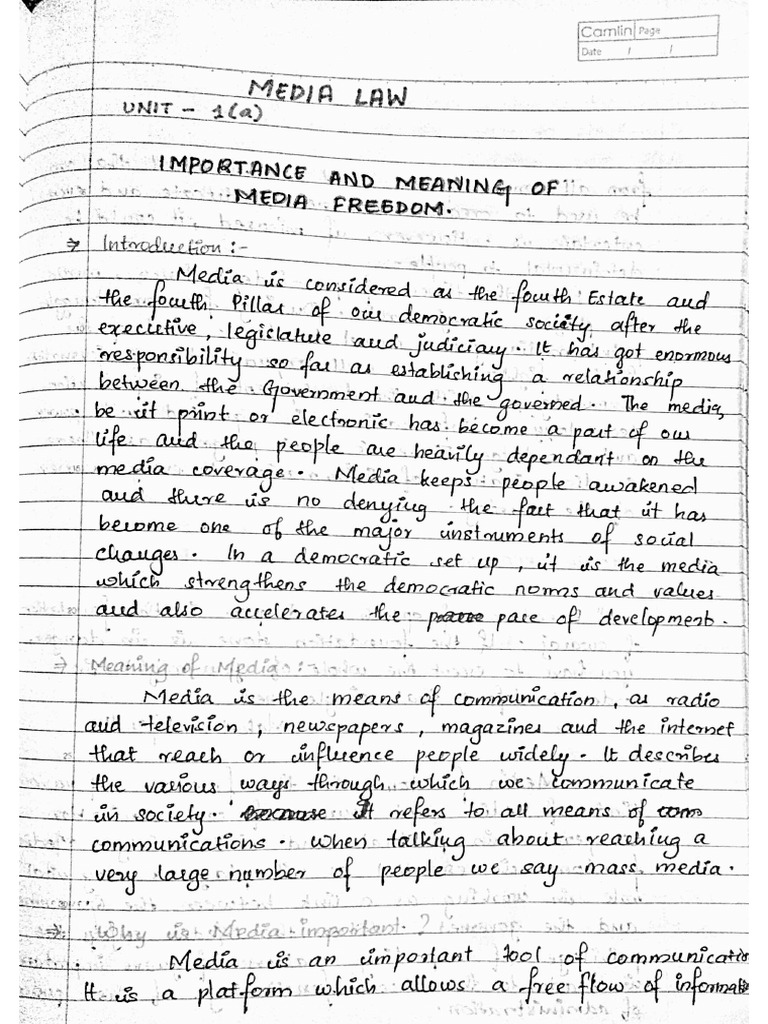 Camlin Page
Date / /
MEDIA LAW
UNIT - 1(a)
IMPORTANCE AND MEANING OF
MEDIA FREEDOM.
⇒ Introduction :-
Media is considered as the fourth Estate and
the fourth Pillar of our democratic society after the
executive, legislature and judiciary. It has got enormous
responsibility so far as establishing a relationship
between the Government and the governed. The media,
be it print or electronic has become a part of our
life and the people are heavily dependant on the
media coverage. Media keeps people awakened
and there is no denying the fact that it has
become one of the major instruments of social
changes. In a democratic set up, it is the media
which strengthens the democratic norms and values
and also accelerates the pace of development.
⇒ Meaning of Media :
Media is the means of communication, as radio
and television, newspapers, magazines and the internet
that reach or influence people widely. It describes
the various ways through which we communicate
in society. It refers to all means of
communications. when talking about reaching a
very large number of people we say mass media.
⇒ Why is Media important?
Media is an important tool of communicatio
It is a platform which allows a free flow of informati